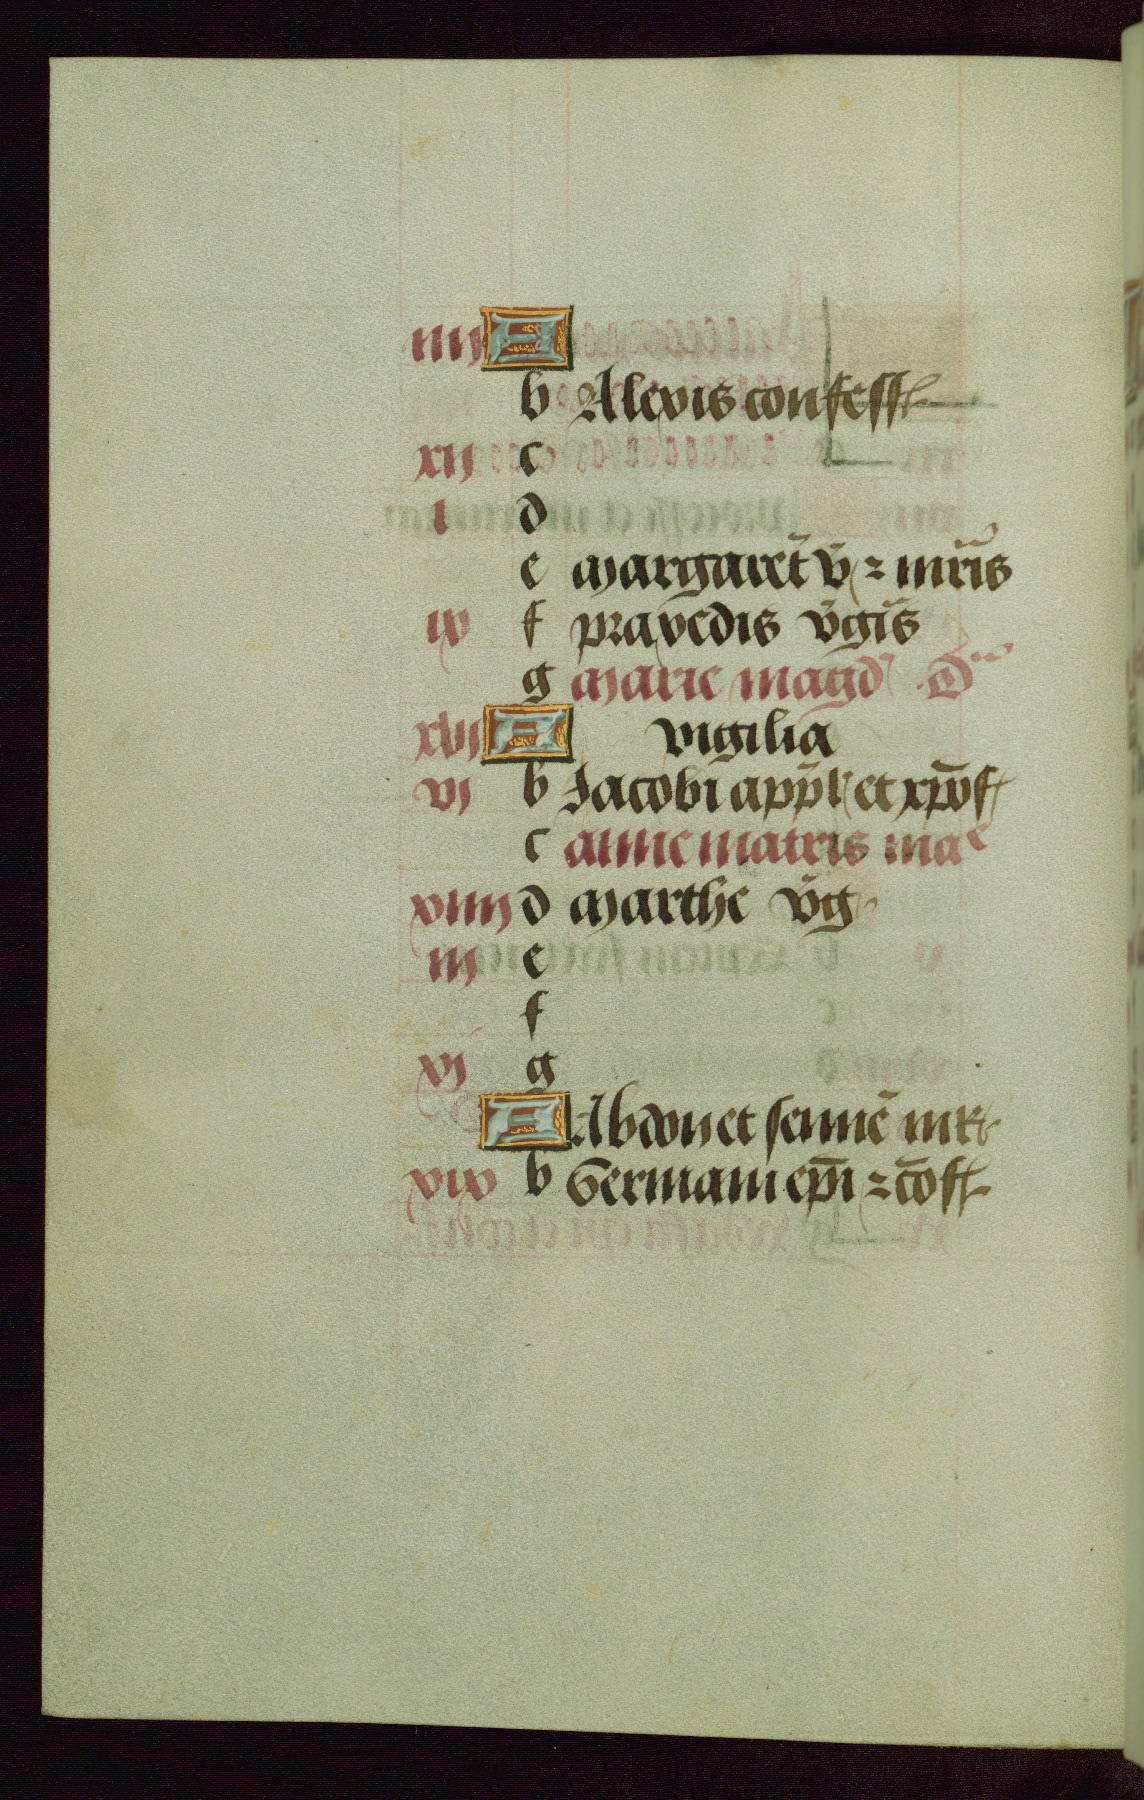 iiij A
b Alexis confess
xij c
i d
e margaret̄ v̄ ⁊ mr̄is
ix f praxedis v̄gīs
g marie magd̄ D
xvij A vigilia
vi b Jacobi app̄l et xp̄of
c anne matris mae
xiiij d marthe v̄g
iij e
f
xi g
A Abdon et sennē mr̄
xix b Germani ep̄i ⁊ c̄of